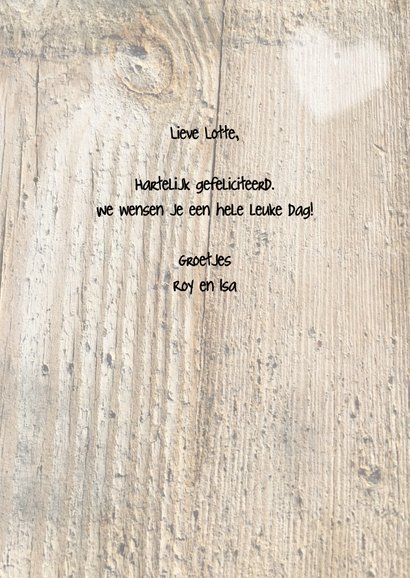 Lieve Lotte,
Hartelijk gefeliciteerd.
We wensen je een hele leuke dag!
Groetjes
Roy en Isa